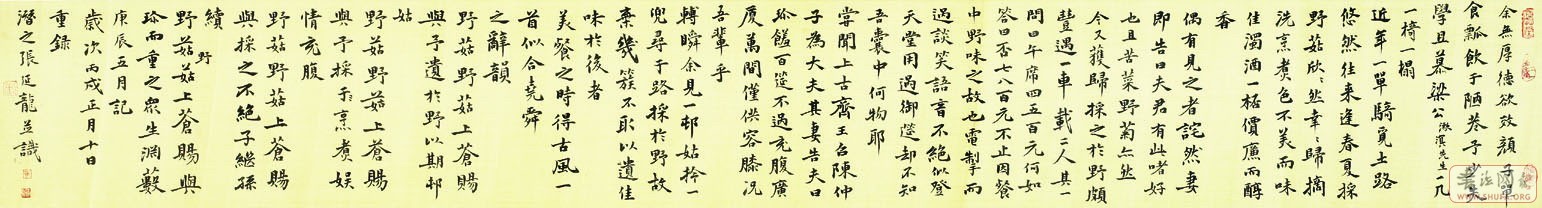 余無厚德欲效顏子單
食瓢飲于陋巷予少失
學且慕梁公漱溟先生一几
一椅一榻
近年一單騎覓土路
悠然往来逢春夏採
野菇欣々然幸々歸摘
洗烹煮色不美而味
佳濁酒一桮價廉而醇
香
偶有見之者詫然妻
即告曰夫君有此啫好
也且苦菜野菊亦然
今又獲歸採之於野頗
豐遇一車載二人其一
問曰午席四五百元何如
答曰否七八百元不止因餐
中野味之故也電掣而
過談笑語言不絕似登
天堂用過御筵却不知
吾囊中何物耶
甞聞上古齊王召陳仲
子為大夫其妻告夫曰
珍饈百筵不過充腹廣
厦萬間僅供容膝况
吾輩乎
轉瞬余見一邨姑拎一
兜尋于路採於野故
棄幾簇不取以遺佳
味於後者
美餐之時得古風一
首似合堯舜
之辭韻
野菇野菇上蒼賜
與予遺於野以期邨
姑
野菇野菇上蒼賜
與予採于烹煮娱
情充腹
野菇野菇上蒼賜
與採之不絕子繼孫
續
野菇野菇上蒼賜與
珍而重之眾生涸藪
庚辰五月記
歲次丙戌正月十日
重録
潛之張延龍並識
書法网
WWW.SHUFA.ORG